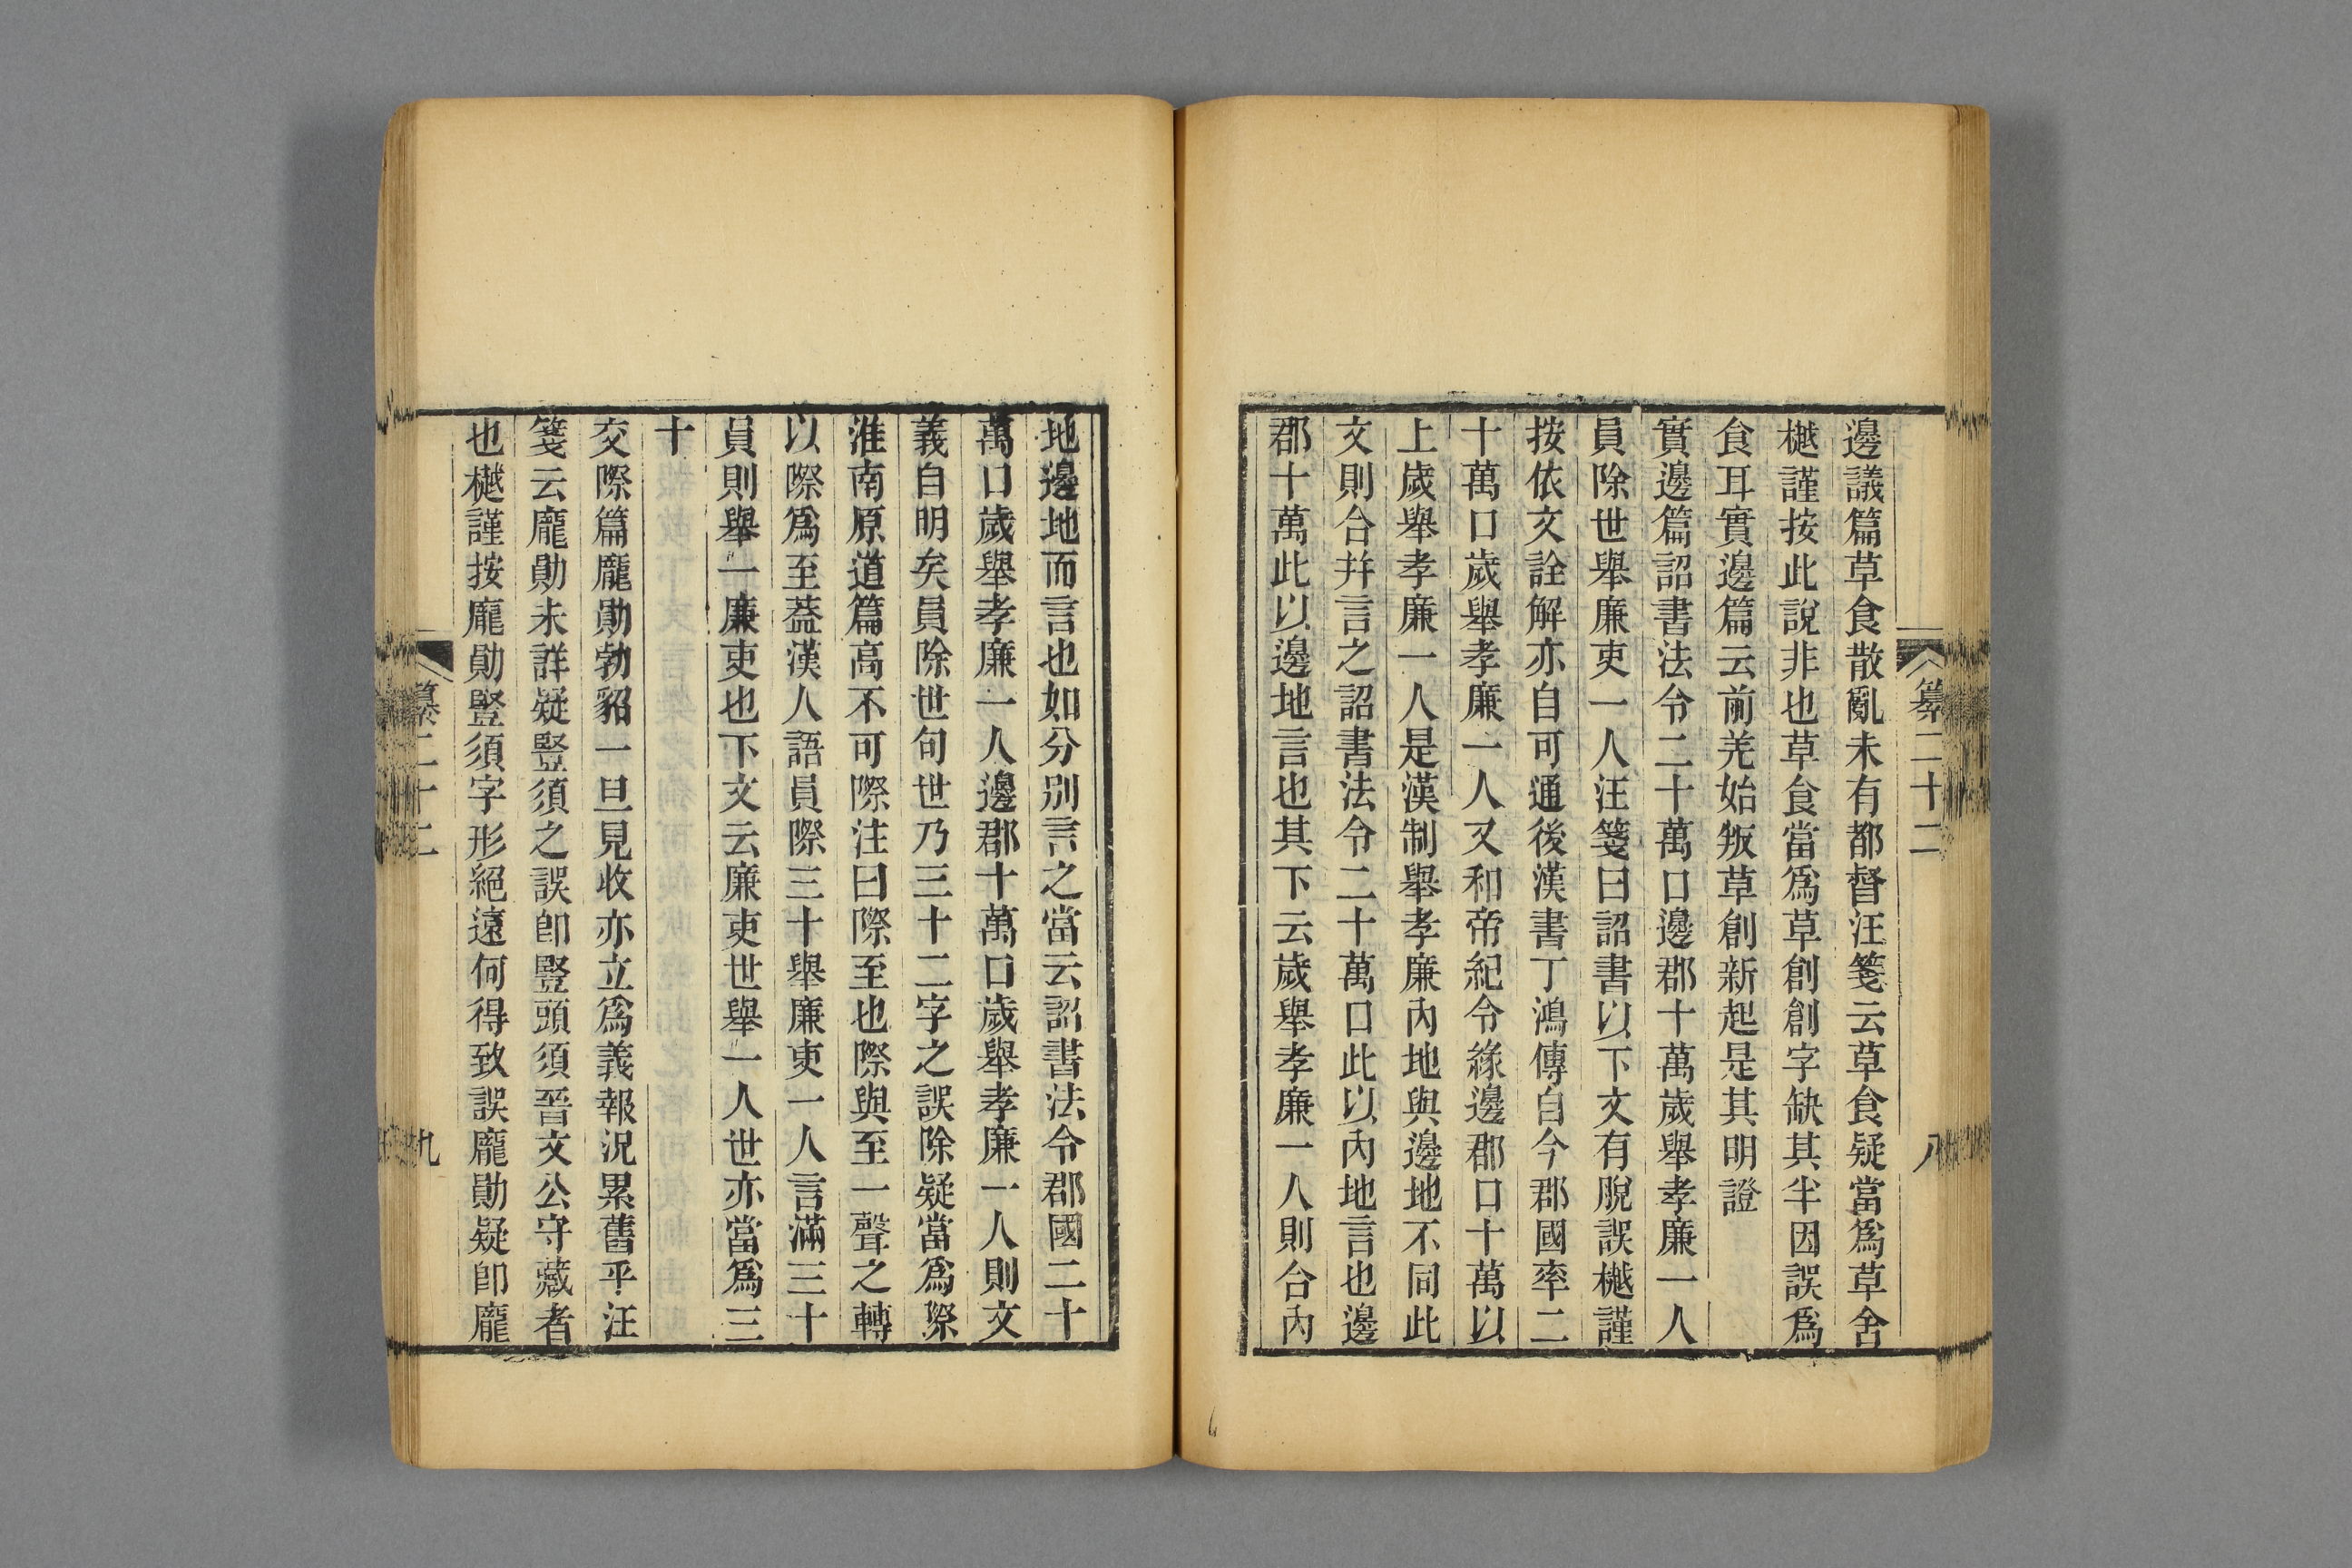 纂二十二
八
邊議篇草食散亂未有都督汪箋云草食疑當爲草舍
樾謹按此說非也草食當爲草創創字缺其半因誤爲
食耳實邊篇云前羌始叛草創新起是其明證
實邊篇詔書法令二十萬口邊郡十萬歲舉孝廉一人
員除世舉廉吏一人汪箋曰詔書以下文有脫誤樾謹
按依文詮解亦自可通後漢書丁鴻傳自今郡國率二
十萬口歲舉孝廉一人又和帝紀令緣邊郡口十萬以
上歲舉孝廉一人是漢制舉孝廉內地與邊地不同此
文則合并言之詔書法令二十萬口此以內地言也邊
郡十萬此以邊地言也其下云歲舉孝廉一人則合內
地邊地而言也如分別言之當云詔書法令郡國二十
萬口歲舉孝廉一人邊郡十萬口歲舉孝廉一人則文
義自明矣員除世句世乃三十二字之誤除疑當爲際
淮南原道篇高不可際注曰際至也際與至一聲之轉
以際爲至葢漢人語員際三十舉廉吏一人言滿三十
員則舉一廉吏也下文云廉吏世舉一人世亦當爲三
十
交際篇龐勛勃貂一旦見收亦立爲義報況累舊乎汪
箋云龐勛未詳疑豎須之誤卽豎頭須晉文公守藏者
也樾謹按龐勛豎須字形絕遠何得致誤龐勛疑卽龐
纂二十二
九